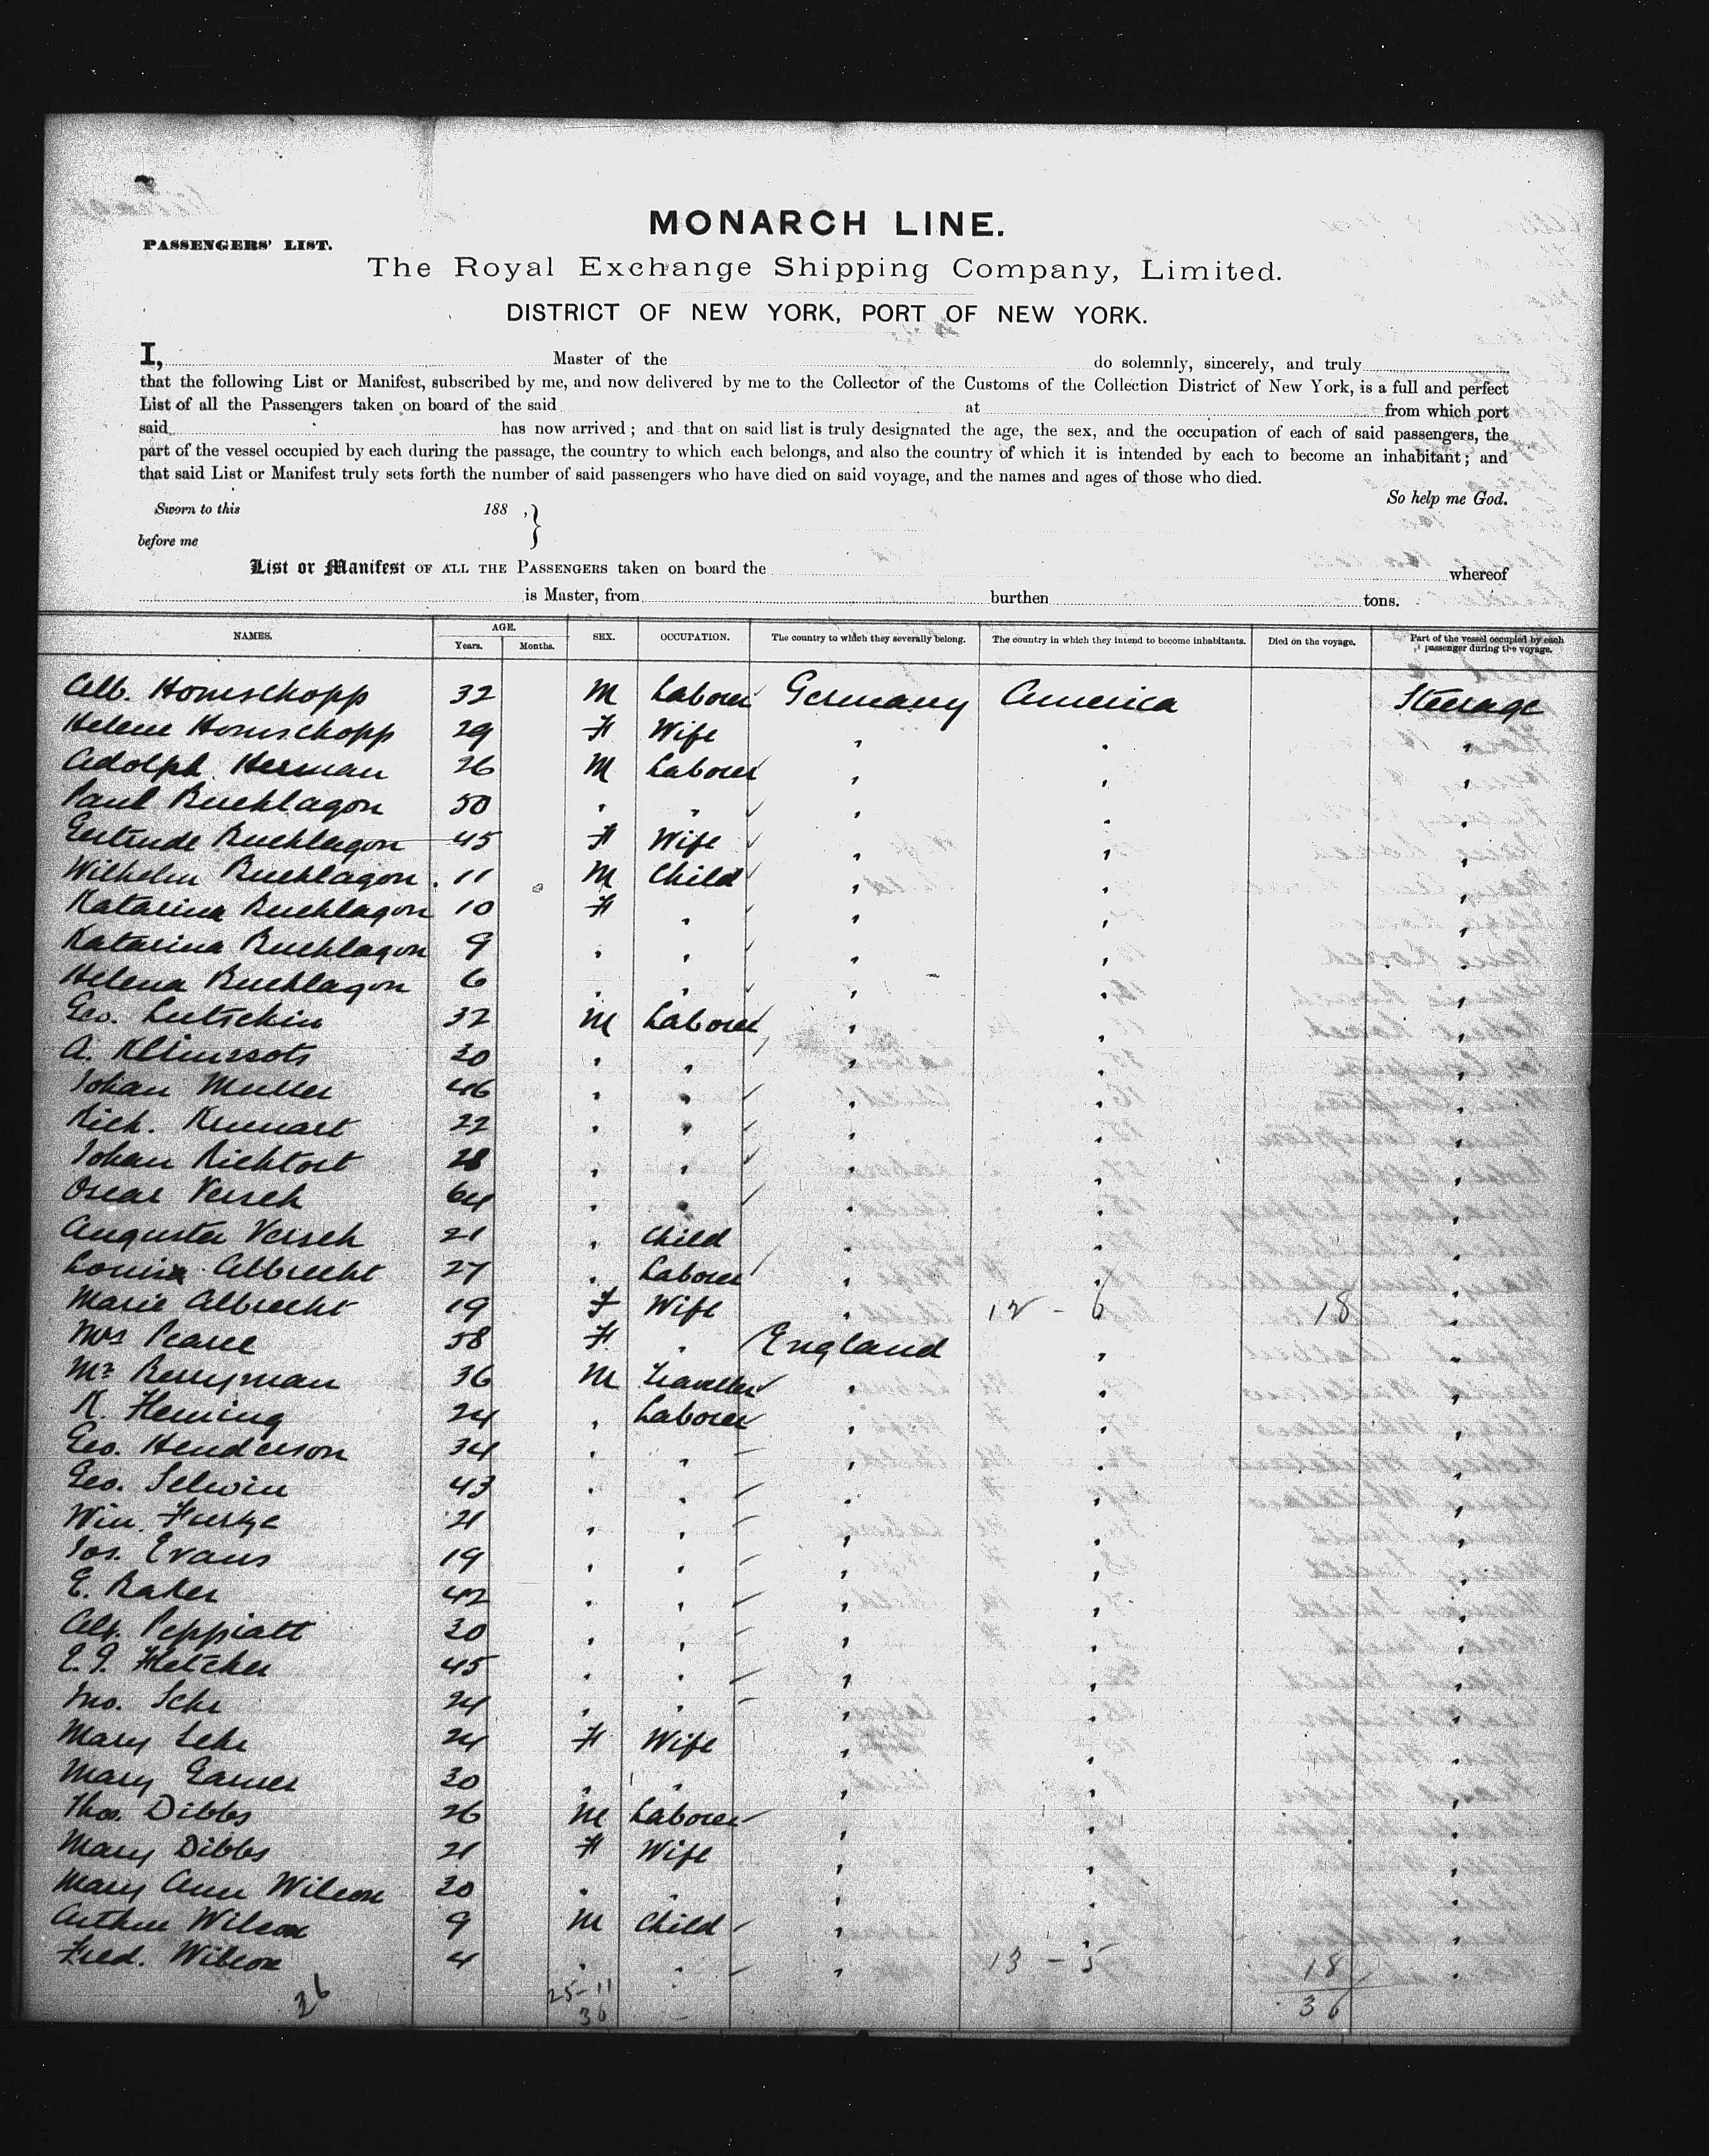 MONARCH LINE.
PASSENGERS' LIST.
The Royal Exchange Shipping Company, Limited.
DISTRICT OF NEW YORK, PORT OF NEW YORK.
I, Master of the do solemnly, sincerely, and truly
that the following List or Manifest, subscribed by me, and now delivered by me to the Collector of the Customs of the Collection District of New York, is a full and perfect
List of all the Passengers taken on board of the said at from which port
said has now arrived; and that on said list is truly designated the age, the sex, and the occupation of each of said passengers, the
part of the vessel occupied by each during the passage, the country to which each belongs, and also the country of which it is intended by each to become an inhabitant; and
that said List or Manifest truly sets forth the number of said passengers who have died on said voyage, and the names and ages of those who died.
So help me God.
Sworn to this 188 ,}
before me
List or Manifest OF ALL THE PASSENGERS taken on board the whereof
is Master, from burthen tons.
NAMES. AGE. Years. Months. SEX. OCCUPATION. The country to which they severally belong. The country in which they intend to become inhabitants. Died on the voyage. Part of the vessel occupied by each passenger during the voyage.
Alb. Homschopp 32 M Laborer Germany America Steerage
Helene Homschopp 29 F Wife " " "
Adolph Herman 26 M Laborer " " "
Paul Buchlagon 50 " " " " "
Gertrude Buchlagon 45 F Wife " " "
Wilhelm Buchlagon 11 M Child " " "
Katarina Buchlagon 10 F " " " "
Katarina Buchlagon 9 " " " " "
Helena Buchlagon 6 " " " " "
Geo. Lutschin 32 M Laborer " " "
A. 30 " " " " "
Johan Muller 46 " " " " "
Rich. 22 " " " " "
Johan Richtort 28 " " " " "
Oscar Versch 64 " " " " "
Augusta Versch 21 " Child " " "
Louisa Albrecht 27 " Laborer " " "
Marie Albrecht 19 F Wife " 12 - 6 18 "
Mrs Pearce 58 F " England " "
Mr Berryman 36 M Traveller " " "
K. Fleming 24 " Laborer " " "
Geo. Henderson 34 " " " " "
Geo. Selwin 43 " " " " "
Wm. 21 " " " " "
Jos. Evans 19 " " " " "
E. Baker 42 " " " " "
Alf. Peppiatt 30 " " " " "
E.J. Fletcher 45 " " " " "
Lehr 24 " " " " "
Mary Lehr 24 F Wife " " "
Mary Garner 30 " " " " "
Thos. Dibbs 26 M Laborer " " "
Mary Dibbs 21 F Wife " " "
Mary Ann Wilson 30 " " " " "
Arthur Wilson 9 M Child " " "
Fred. Wilson 4 " " " 13 - 5 18 "
36 25-11 36
36